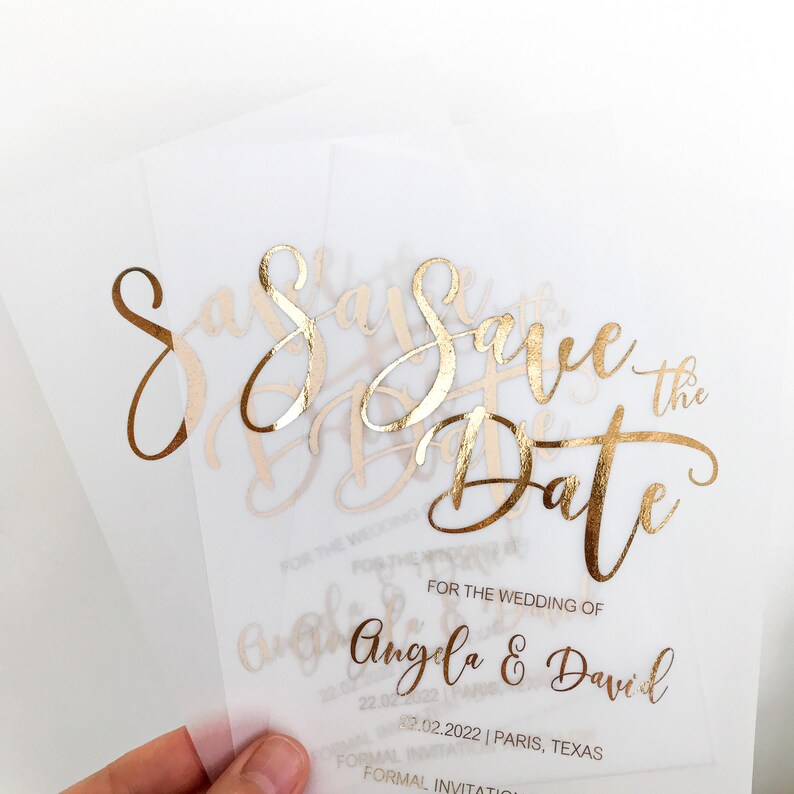 Save the
Date
FOR THE WEDDING OF
Angela & David
22.02.2022 | PARIS, TEXAS
FORMAL INVITATION